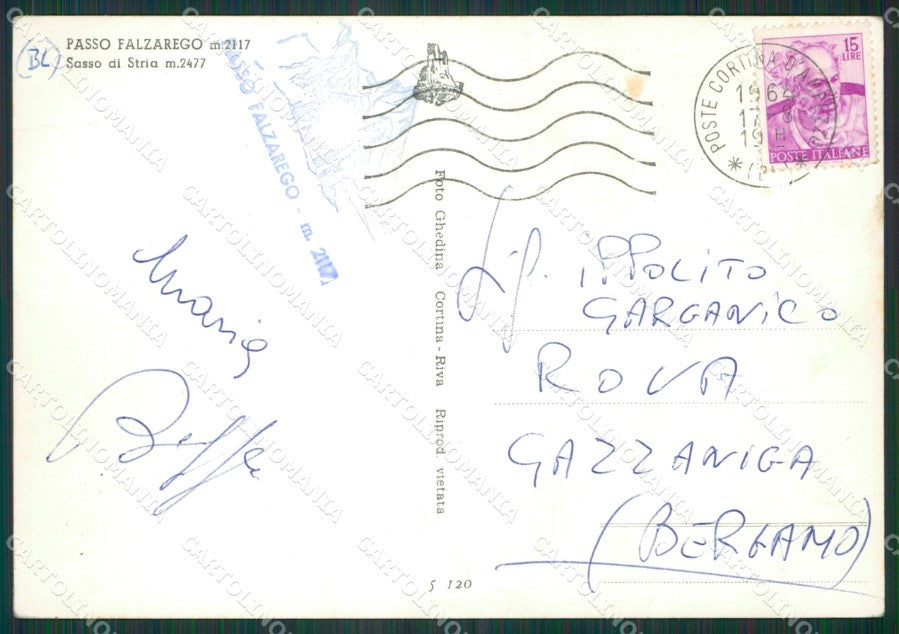 PASSO FALZAREGO m.2117
Sasso di Stria m.2477
(BL)
PASSO FALZAREGO - m. 2117
15
LIRE
POSTE ITALIANE
POSTE CORTINA D'AMPEZZO
1964
17 8
19 H
Foto Ghedina Cortina - Riva Riprod. vietata
Maria
Sig. IPPOLITO
GARGANICO
ROVA
GAZZANIGA
(BERGAMO)
5 120
CARTOLINOMANIA